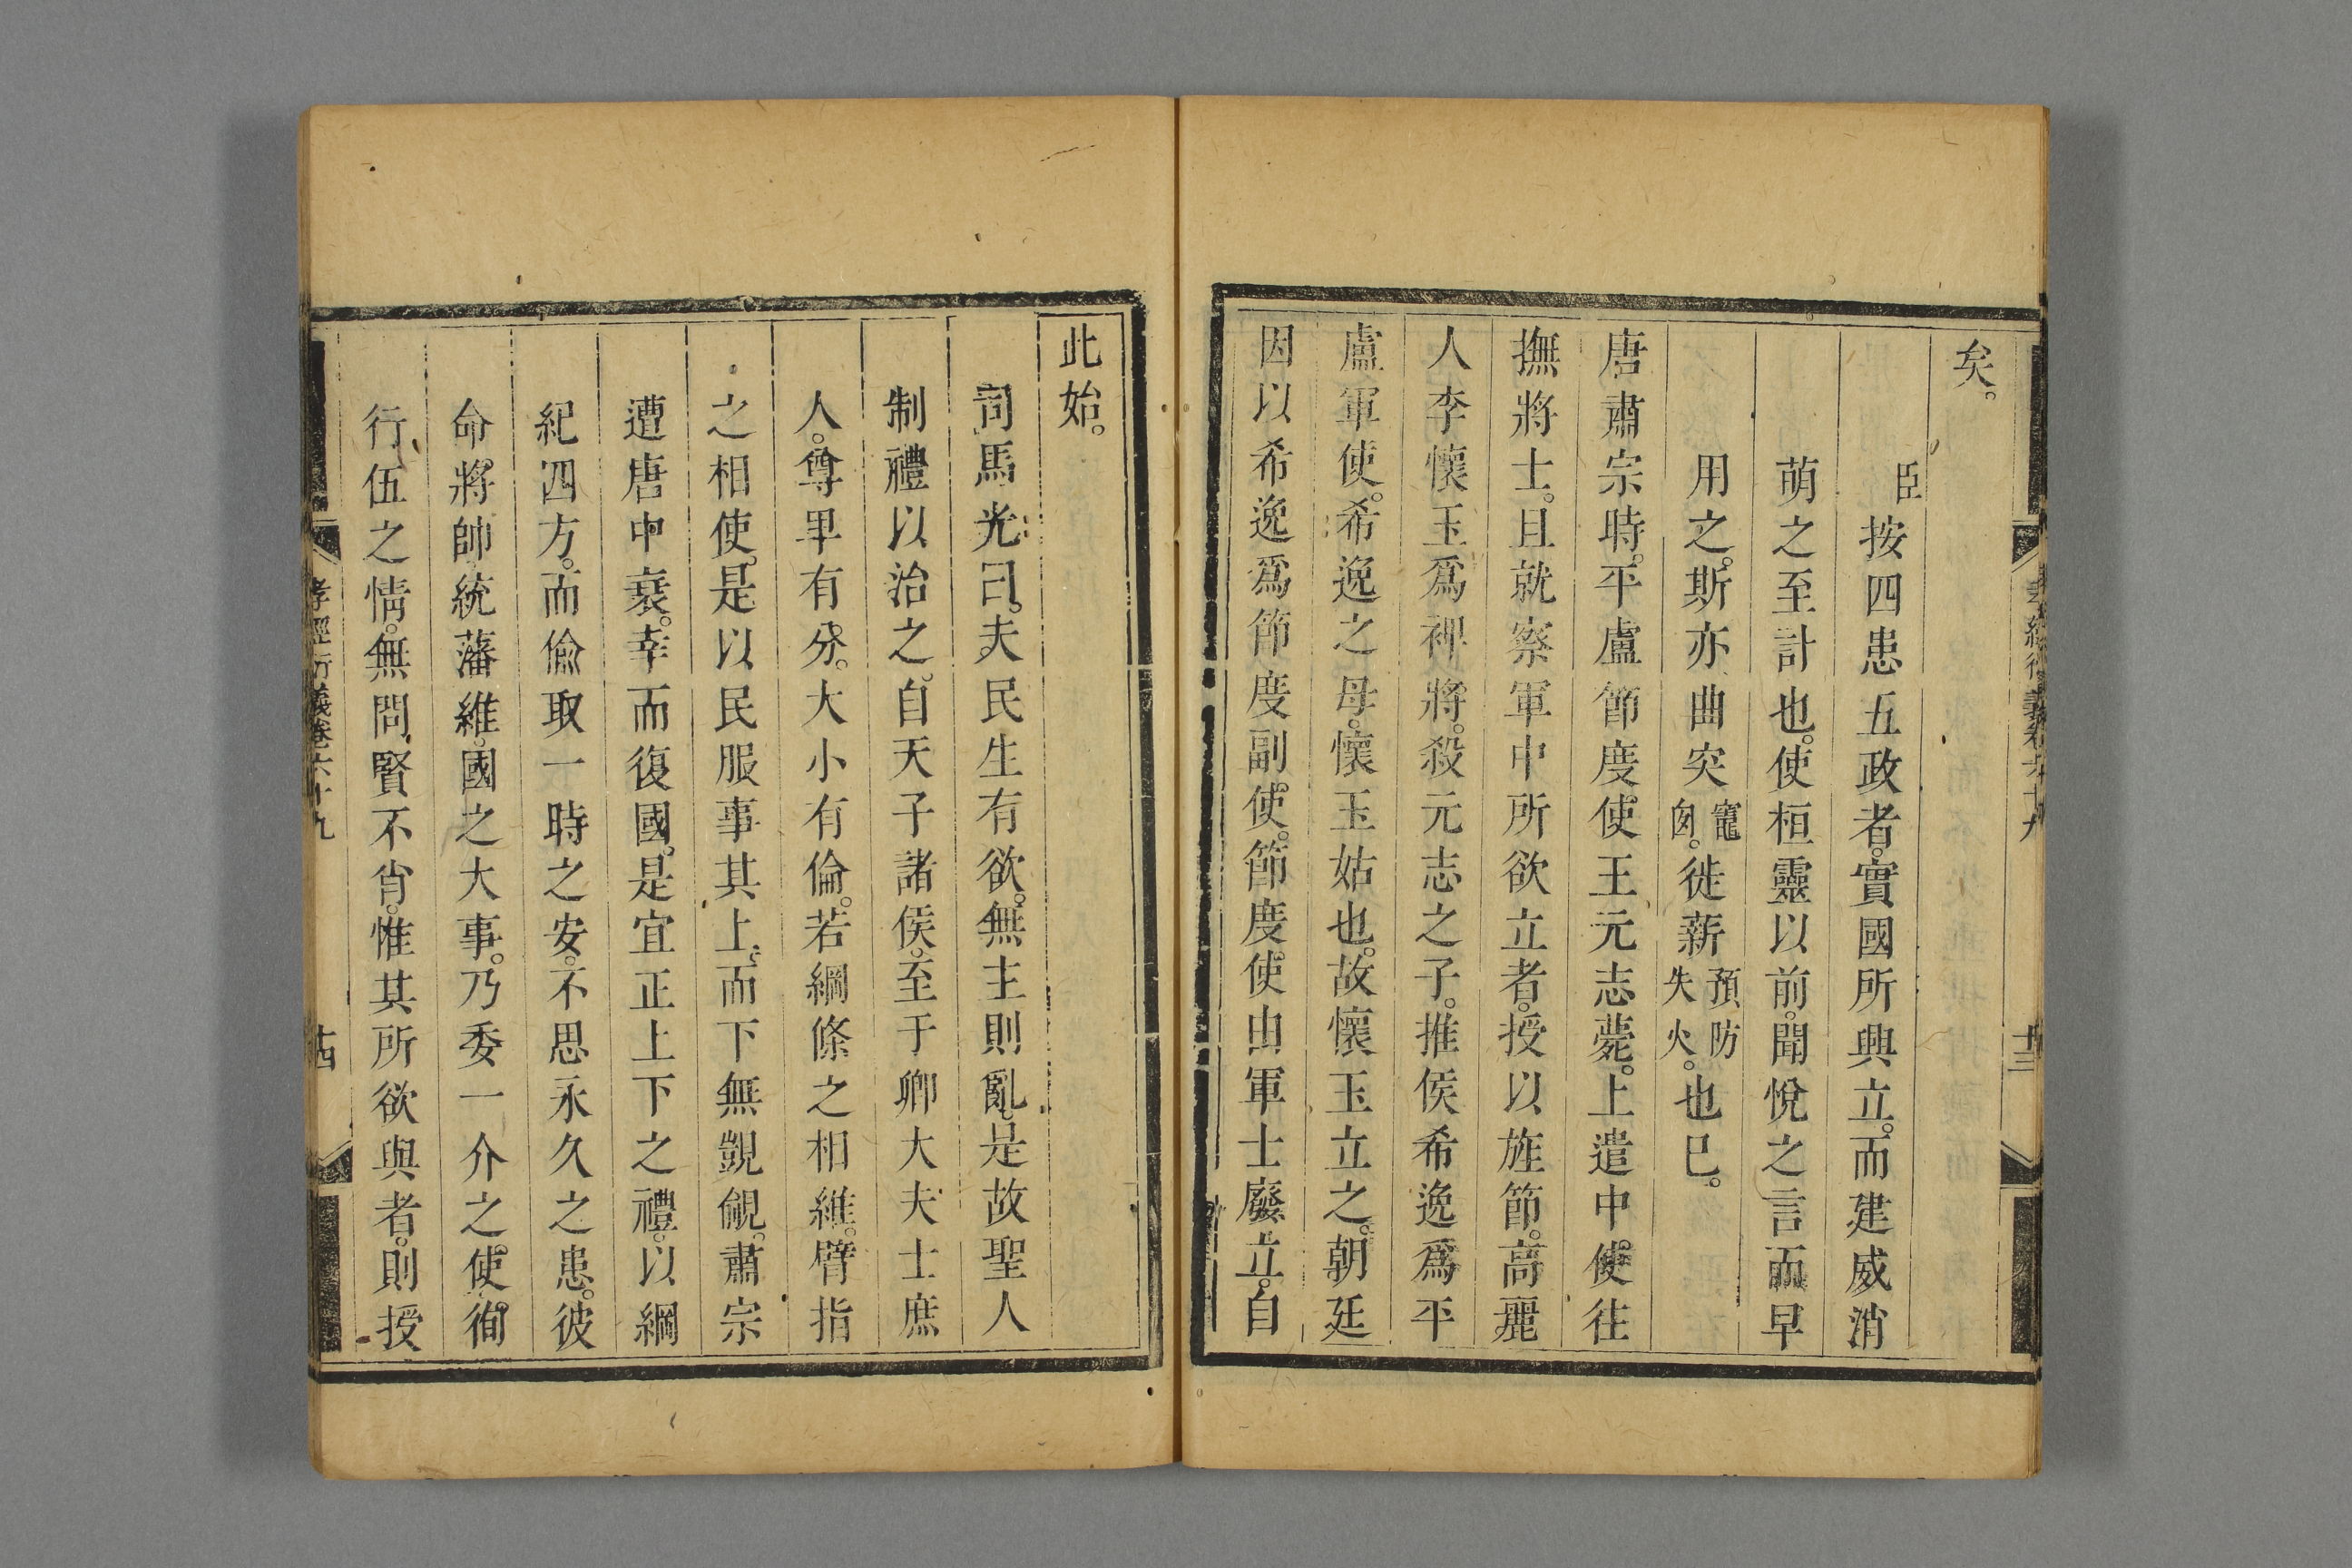 孝經衍義卷六十九
十三
矣。
臣按四患五政者。實國所興立。而建威消
萌之至計也。使桓靈以前。聞悅之言而早
用之。斯亦曲突竈囪。徙薪預防失火。也已。
唐肅宗時。平盧節度使王元志薨。上遣中使往
撫將士。且就察軍中所欲立者。授以旌節。高麗
人李懷玉爲裨將。殺元志之子。推侯希逸爲平
盧軍使。希逸之母。懷玉姑也。故懷玉立之。朝廷
因以希逸爲節度副使。節度使由軍士廢立。自
此始。
司馬光曰。夫民生有欲。無主則亂。是故聖人
制禮以治之。自天子諸侯。至于卿大夫士庶
人。尊卑有分。大小有倫。若綱條之相維。臂指
之相使。是以民服事其上。而下無覬覦。肅宗
遭唐中衰。幸而復國。是宜正上下之禮。以綱
紀四方。而偷取一時之安。不思永久之患。彼
命將帥。統藩維。國之大事。乃委一介之使。徇
行伍之情。無問賢不肖。惟其所欲與者。則授
孝經衍義卷六十九
十四